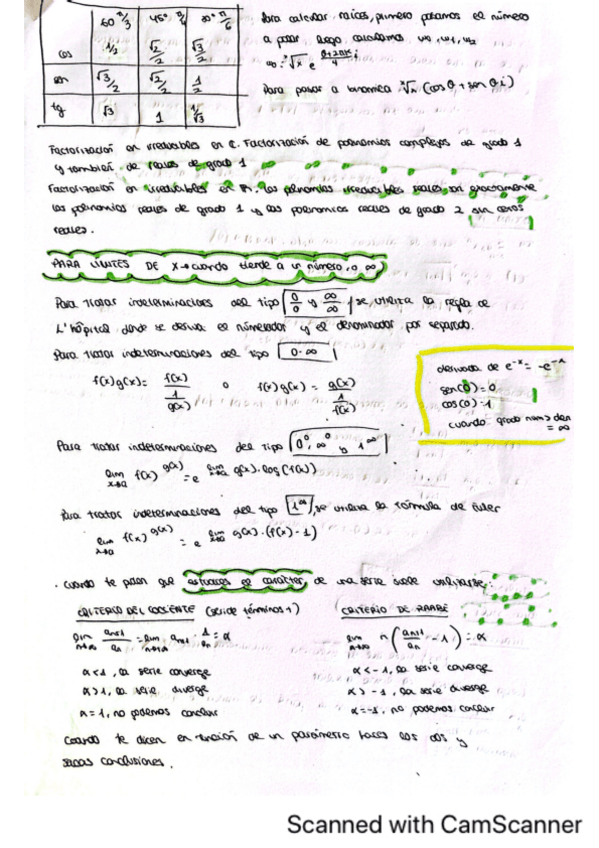 60 π/3 45º π/4 30º π/6
cos 1/2 √2/2 √3/2
sen √3/2 √2/2 1/2
tg √3 1 1/√3
Para calcular raíces, primero pasamos el número
a polar luego calculamos w0, w1, w2
Para pasar a binomica ⁿ√r (cos θ + sen θ i)
Factorización en irreducibles en C. Factorización de polinomios complejos de grado 1
y también de reales de grado 1
Factorización en irreducibles en R: los polinomios irreducibles reales son exactamente
los polinomios reales de grado 1 y los polinomios reales de grado 2 sin ceros
reales.
PARA LIMITES DE X→ cuando tiende a un número, 0, ∞
Para tratar indeterminaciones del tipo 0/0 y ∞/∞, se utiliza la regla de
L'hôpital donde se deriva el númerador y el denominador por separado.
Para tratar indeterminaciones del tipo 0·∞
f(x)g(x) = f(x)/(1/g(x)) o f(x)g(x) = g(x)/(1/f(x))
derivada de e^-x = -e^-x
sen(0) = 0
cos(0) = 1
cuando grado num > den
= ∞
Para tratar indeterminaciones del tipo 0^0, ∞^0 y 1^∞
lim x→a f(x)^g(x) = e^ lim x→a g(x)·log(f(x))
Para tratar indeterminaciones del tipo 1^∞, se utiliza la fórmula de Euler
lim x→a f(x)^g(x) = e^ lim x→a g(x)·(f(x)-1)
· Cuando te piden que estudies el carácter de una serie suele utilizarse:
CRITERIO DEL COCIENTE (serie de términos +)
lim n→∞ an+1/an = lim n→∞ an+1 · 1/an = α
α < 1, la serie converge
α > 1, la serie diverge
α = 1, no podemos concluir
CRITERIO DE RAABE
lim n→∞ n(an+1/an - 1) = α
α < -1, la serie converge
α > -1, la serie diverge
α = -1, no podemos concluir
Cuando te dicen en función de un parámetro haces los dos y
sacas conclusiones.
Scanned with CamScanner